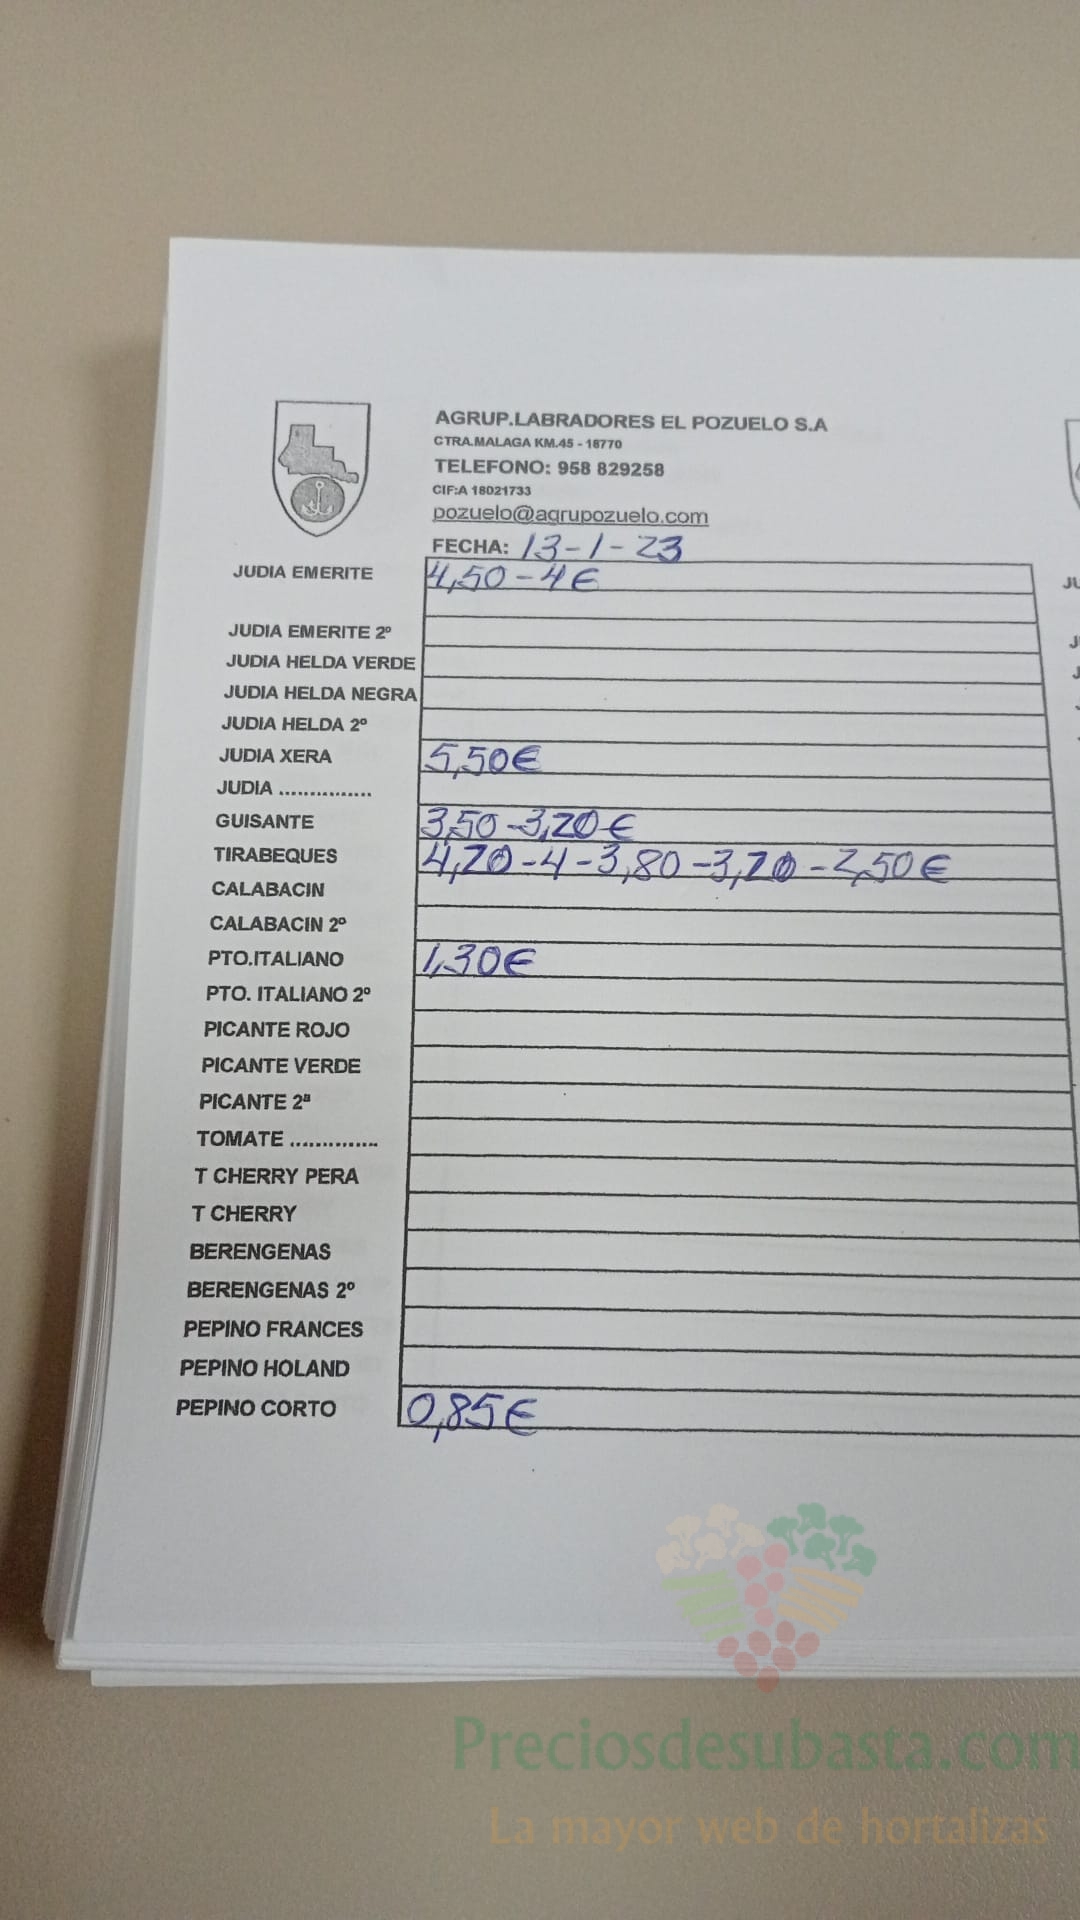 AGRUP.LABRADORES EL POZUELO S.A
CTRA.MALAGA KM.45 - 18770
TELEFONO: 958 829258
CIF:A 18021733
pozuelo@agrupozuelo.com
FECHA: 13-1-23
JUDIA EMERITE 4,50-4€
JUDIA EMERITE 2º
JUDIA HELDA VERDE
JUDIA HELDA NEGRA
JUDIA HELDA 2º
JUDIA XERA 5,50€
JUDIA ...............
GUISANTE 3,50-3,20€
TIRABEQUES 4,20-4-3,80-3,20-2,50€
CALABACIN
CALABACIN 2º
PTO.ITALIANO 1,30€
PTO. ITALIANO 2º
PICANTE ROJO
PICANTE VERDE
PICANTE 2ª
TOMATE ...............
T CHERRY PERA
T CHERRY
BERENGENAS
BERENGENAS 2º
PEPINO FRANCES
PEPINO HOLAND
PEPINO CORTO 0,85€
Preciosdesubasta.com
La mayor web de hortalizas